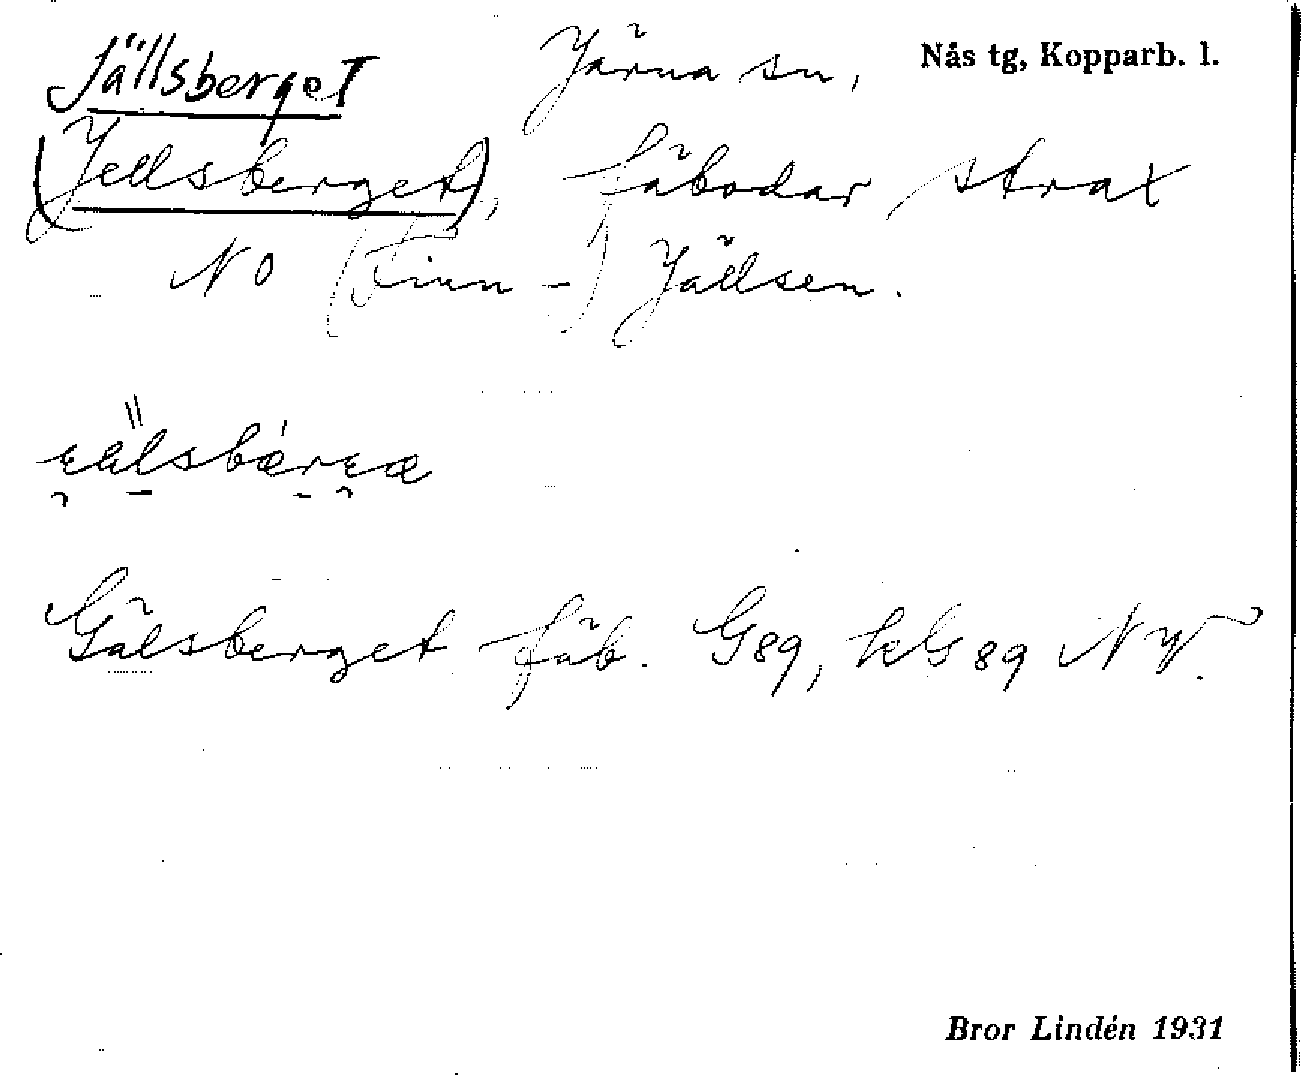 Jällsberget Järna sn, Nås tg, Kopparb. l.
(Jellsberget), fäbodar strax
NO (Finn-) Jällsen.
Gälsberget fäb. G89, kG89 NV.
Bror Lindén 1931